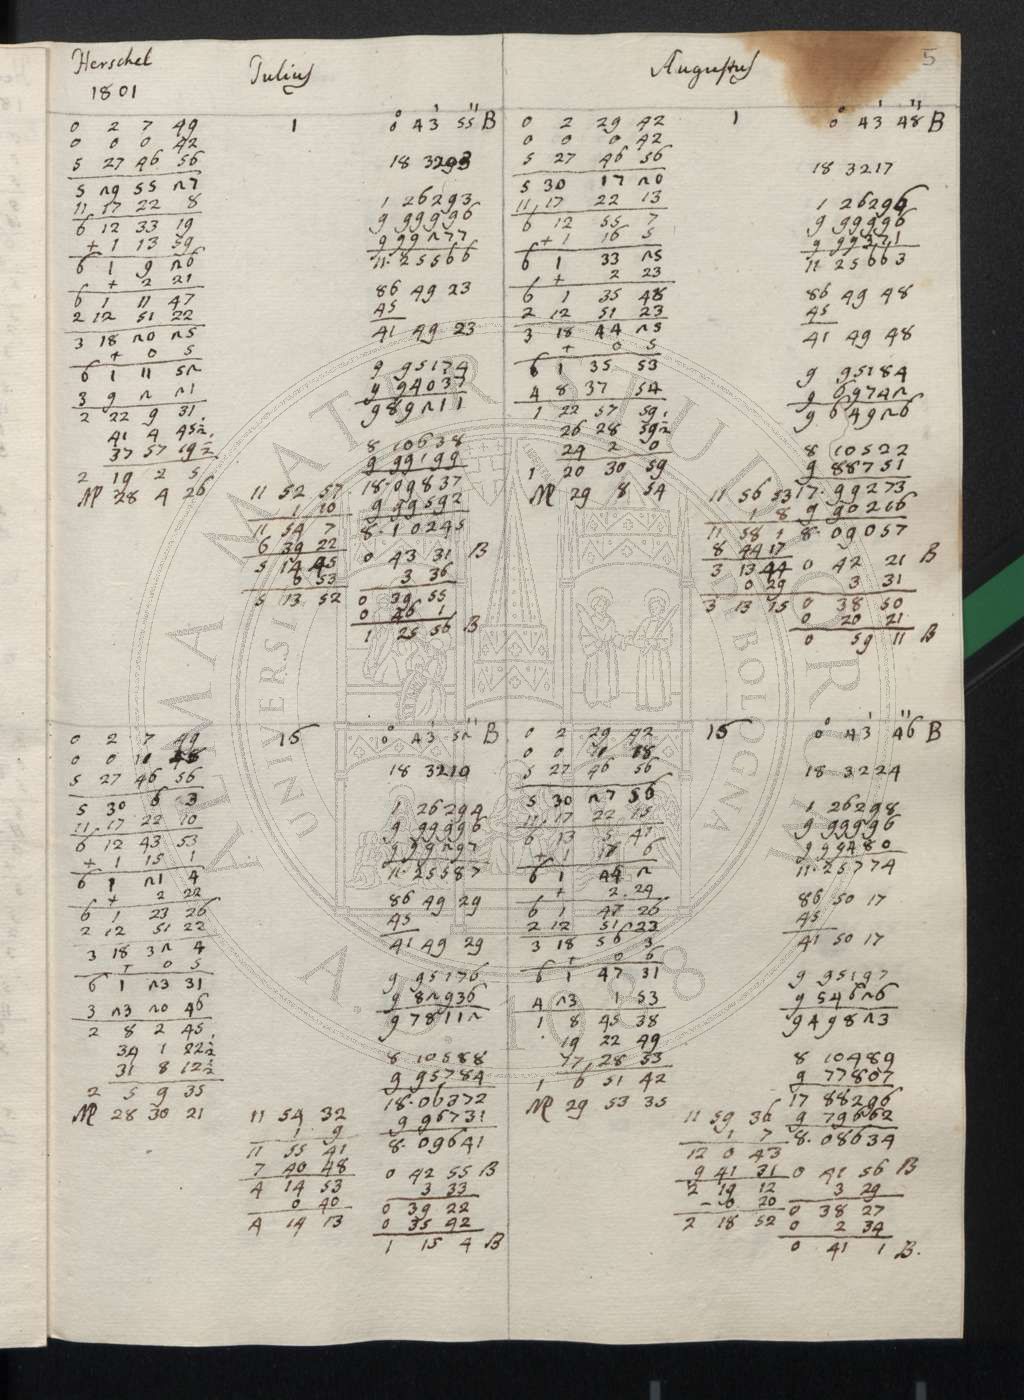 5
Herschel
1801
Julius
Augustus
0 2 7 49
0 0 0 42
5 27 46 56
5 29 55 27
11 17 22 8
6 12 33 19
+ 1 13 59
6 1 9 20
+ 2 21
6 1 11 47
2 12 51 22
3 18 20 25
+ 0 5
6 1 11 52
3 9 2 21
2 22 9 31
41 4 45½
37 57 19½
2 19 2 5
♏ 28 4 26
1
11 52 57
1 10
11 54 7
6 39 22
5 14 45
0 53
5 13 52
0° 43' 55" B
18 3293
1 26293
9 99996
9 99277
11·25566
86 49 23
45
41 49 23
9 95174
9 94037
9 89211
8 10638
9 99199
18·09837
9 99592
8·10245
0 43 31 B
3 36
0 39 55
0 46 1
1 25 56 B
0 2 29 42
0 0 0 42
5 27 46 56
5 30 17 20
11 17 22 13
6 12 55 7
+ 1 16 5
6 1 33 25
+ 2 23
6 1 35 48
2 12 51 23
3 18 44 25
+ 0 5
6 1 35 53
4 8 37 54
1 22 57 59
26 28 39½
24 2 0
1 20 30 59
♏ 29 8 54
1
11 56 53
1 8
11 58 1
8 44 17
3 13 44
0 29
3 13 15
0° 43' 48" B
18 3217
1 26296
9 99996
9 99371
11 25663
86 49 48
45
41 49 48
9 95184
9 69742
9 64926
8 10522
9 88751
17·99273
9 90266
8·09057
0 42 21 B
3 31
0 38 50
0 20 21
0 59 11 B
0 2 7 49
0 0 11 48
5 27 46 56
5 30 6 3
11 17 22 10
6 12 43 53
+ 1 15 1
6 1 21 4
+ 2 22
6 1 23 26
2 12 51 22
3 18 32 4
+ 0 5
6 1 23 31
3 23 20 46
2 8 2 45
34 1 22½
31 8 12½
2 5 9 35
♏ 28 30 21
15
11 54 32
1 9
11 55 41
7 40 48
4 14 53
0 40
4 14 13
0° 43' 52" B
18 3210
1 26294
9 99996
9 99297
11·25587
86 49 29
45
41 49 29
9 95176
9 82936
9 78112
8 10588
9 95784
18·06372
9 96731
8·09641
0 42 55 B
3 33
0 39 22
0 35 42
1 15 4 B
0 2 29 42
0 0 11 18
5 27 46 56
5 30 27 56
11 17 22 15
6 13 5 41
+ 1 16 6
6 1 44 2
+ 2 24
6 1 47 26
2 12 51 23
3 18 56 3
+ 0 6
6 1 47 31
4 23 1 53
1 8 45 38
19 22 49
17 28 53
1 6 51 42
♏ 29 53 35
15
11 59 36
1 7
12 0 43
9 41 31
2 19 12
- 0 20
2 18 52
0° 43' 46" B
18 3224
1 26298
9 99996
9 99480
11·25774
86 50 17
45
41 50 17
9 95197
9 54626
9 49823
8 10489
9 77807
17 88296
9 79662
8·08634
0 41 56 B
3 29
0 38 27
0 2 34
0 41 1 B.